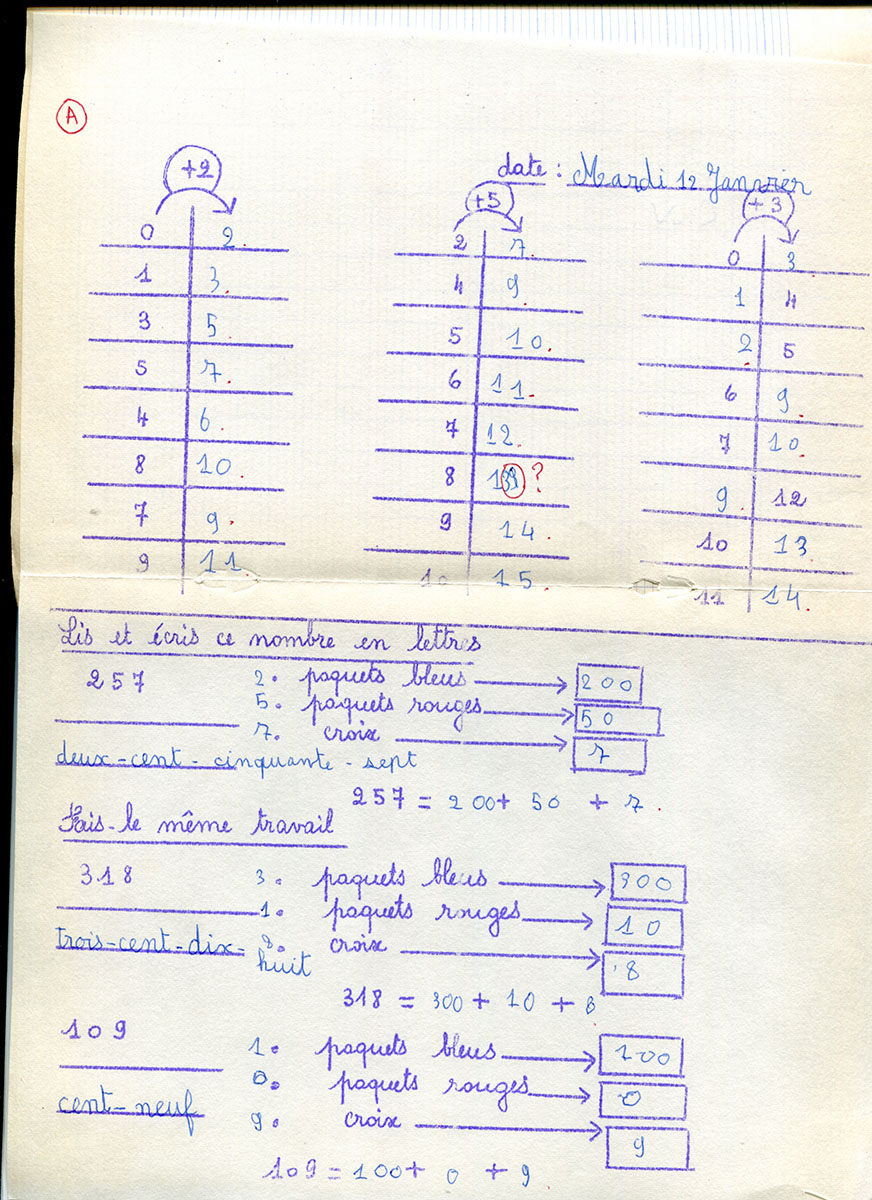 A
date : Mardi 12 Janvier
+2
0 2.
1 3.
3 5.
5 7.
4 6.
8 10.
7 9.
9 11.
+5
2 7.
4 9.
5 10.
6 11.
7 12.
8 13 ?
9 14.
10 15.
+3
0 3.
1 4
2. 5
6 9.
7 10.
9. 12
10 13.
11 14.
Lis et écris ce nombre en lettres
257 2. paquets bleus 200
5. paquets rouges 50
7. croix 7
deux-cent-cinquante-sept
257 = 200 + 50 + 7.
Fais-le même travail
318 3. paquets bleus 300
1. paquets rouges 10
trois-cent-dix- 8. croix 8
huit
318 = 300 + 10 + 8
109 1. paquets bleus 100
0. paquets rouges 0
cent-neuf 9. croix 9
109 = 100 + 0 + 9